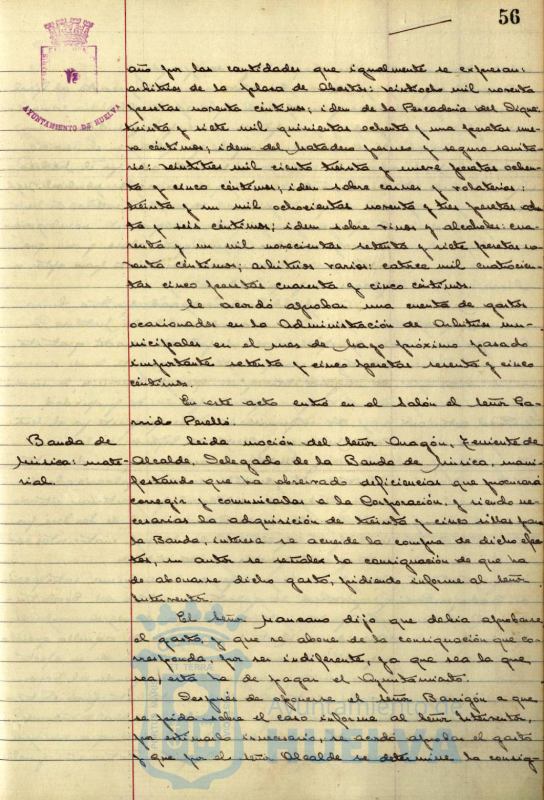 56
AYUNTAMIENTO DE HUELVA
año por las cantidades que igualmente se expresan:
arbitrios de la plaza de Abastos: veintiocho mil noventa
pesetas noventa céntimos; idem de la Pescadería del Dique
treinta y siete mil quinientas ochenta y una pesetas nueve
céntimos; idem del matadero
y seguro sanitario:
veintitres mil ciento treinta y nueve pesetas ochenta
y cinco céntimos; idem sobre carnes y volaterías:
treinta y un mil ochocientas noventa y tres pesetas
y seis céntimos; idem sobre vinos y alcoholes: cua-
renta y un mil novecientas setenta y siete pesetas no-
venta céntimos; arbitrios varios: catorce mil cuatrocien-
tas cinco pesetas cuarenta y cinco céntimos.
Se acordó aprobar una cuenta de gastos
ocasionados en la Administración de Arbitrios mu-
nicipales en el mes de Mayo próximo pasado
importante setenta y cinco pesetas sesenta y cinco
céntimos.
En este acto entró en el Salón el Señor Ga-
rrido Perelló.
Banda de
Música: mate-
rial.
Leida moción del Señor Aragón, Teniente de
Alcalde, Delegado de la Banda de Música, mani-
festando que ha observado deficiencias que procurará
corregir y comunicarlas a la Corporación, y siendo ne-
cesarias la adquisición de treinta y cinco sillas para
la Banda, interesa se acuerde la compra de dicho efec-
tos, su autor se señale la consignación de que ha
de abonarse dicho gasto, pidiendo informe al Señor
Interventor.
El Señor Manzano dijo que debía aprobarse
el gasto, y que se abone de la consignación que co-
rresponda, por ser indiferente, ya que sea la que
sea, esta ha de pagar el Ayuntamiento.
Después de oponerse el Señor Barrigón a que
se pida sobre el caso informe al Señor Interventor,
por estimarlo innecesario, se acordó aprobar el gasto
y que por el Señor Alcalde se determine la consig-
Ayuntamiento de
HUELVA